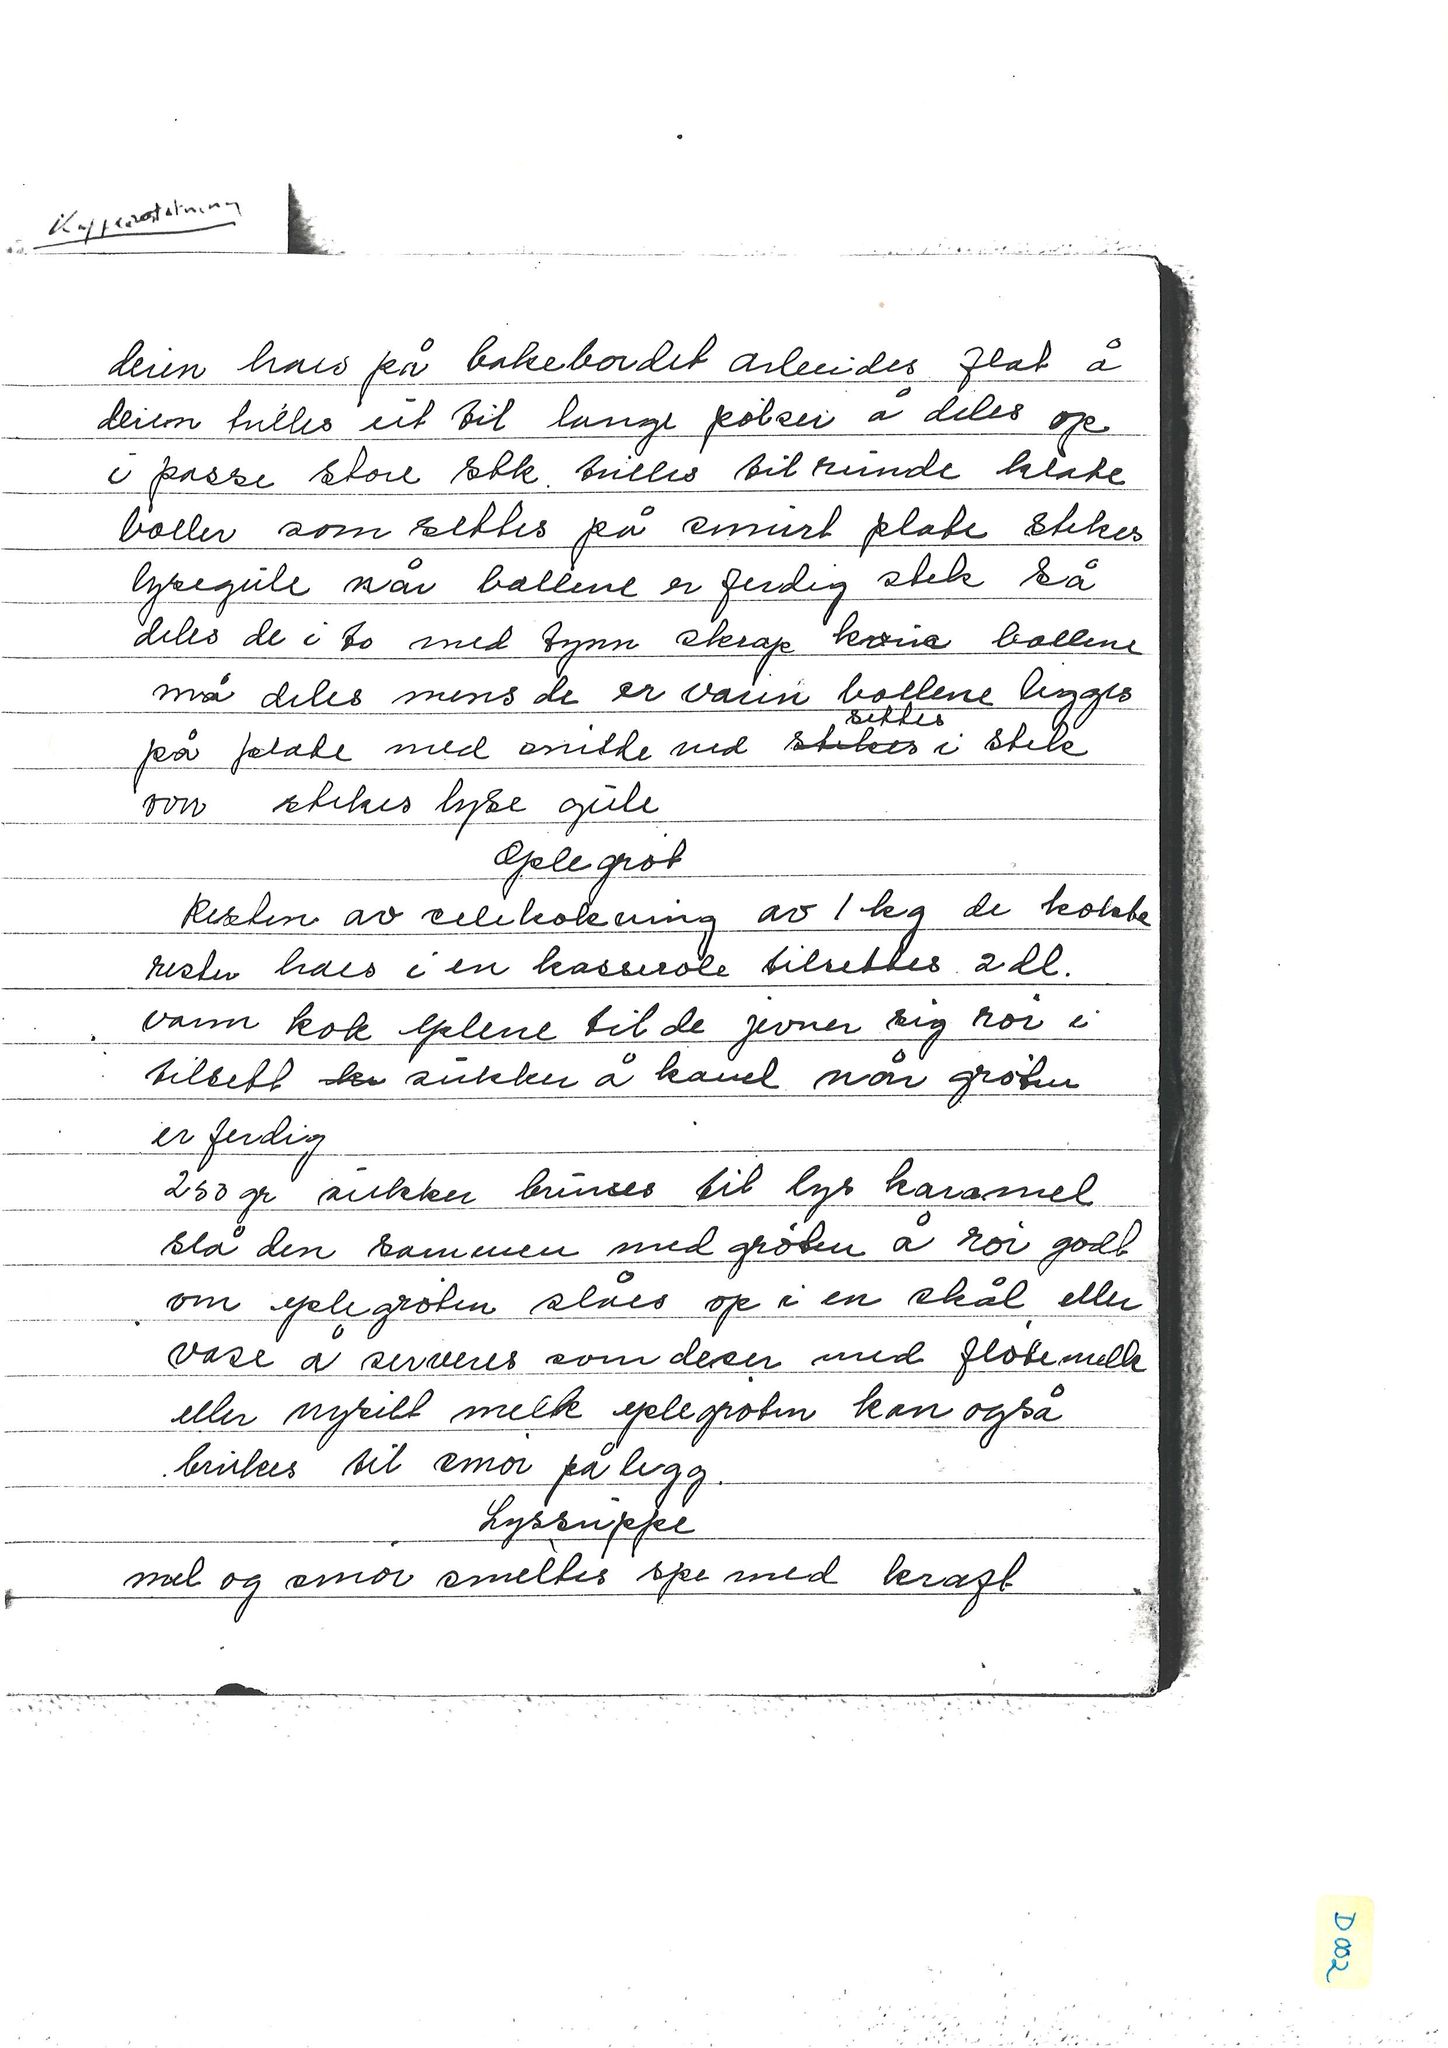 Kaffeerstatning
deien haes på bakebordet arbeides flat å
deien trilles ut til lange pølser å deles op
i passe store stk. trilles til runde klate
boller som settes på smurt plate stekes
lysegule når bollene er ferdig stek så
deles de i to med tynn skrap kniv bollene
må deles mens de er varm bollene legges
på plate med snitte ned stekes settes i stek
ovn stekes lyse gule
Eplegrøt
Resten av selekokning av 1 kg de kokte
rester haes i en kasserole tilsettes 2 dl.
vann kok eplene til de jevner sig rør i
tilsett ka sukker å kanel når grøten
er ferdig
250 gr sukker brunes til lys karamel
slå den sammen med grøten å rør godt
om eplegrøten slåes op i en skål eller
vase å serveres som deser med fløtemelk
eller nysilt melk eplegrøten kan også
brukes til smør pålegg.
Lyssuppe
mel og smør smeltes spe med kraft
D002